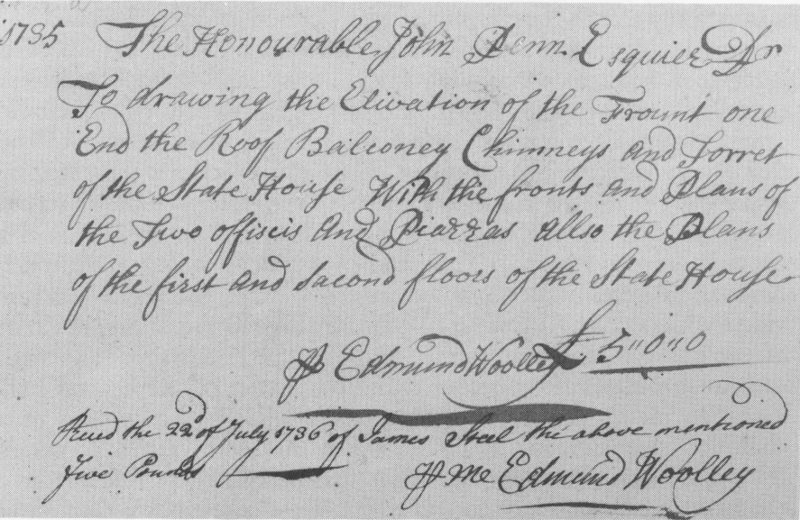 1735 The Honourable John Penn Esquier Dr
To drawing the Elivation of the Frount one
End the Roof Balconey Chimneys And Torret
of the State House With the fronts And Plans of
the Two offiscis And Piazzas allso the Plans
of the first and Sacond floors of the State House
£5"0"0
P Edmund Woolley
Recd the 22d of July 1736 of James Steel the above mentioned
five Pounds
P me Edmund Woolley